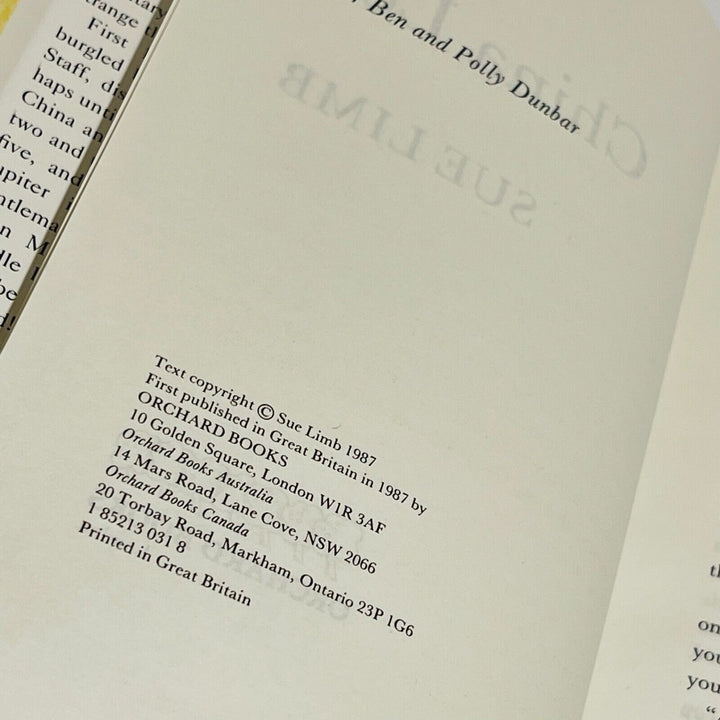 First
burgled
Staff, dis
haps unti
China an
two and
five, and
Ben and Polly Dunbar
China
SUE LIMB
Text copyright © Sue Limb 1987
First published in Great Britain in 1987 by
ORCHARD BOOKS
10 Golden Square, London W1R 3AF
Orchard Books Australia
14 Mars Road, Lane Cove, NSW 2066
Orchard Books Canada
20 Torbay Road, Markham, Ontario 23P 1G6
1 85213 031 8
Printed in Great Britain
ORCHARD
on
you
you